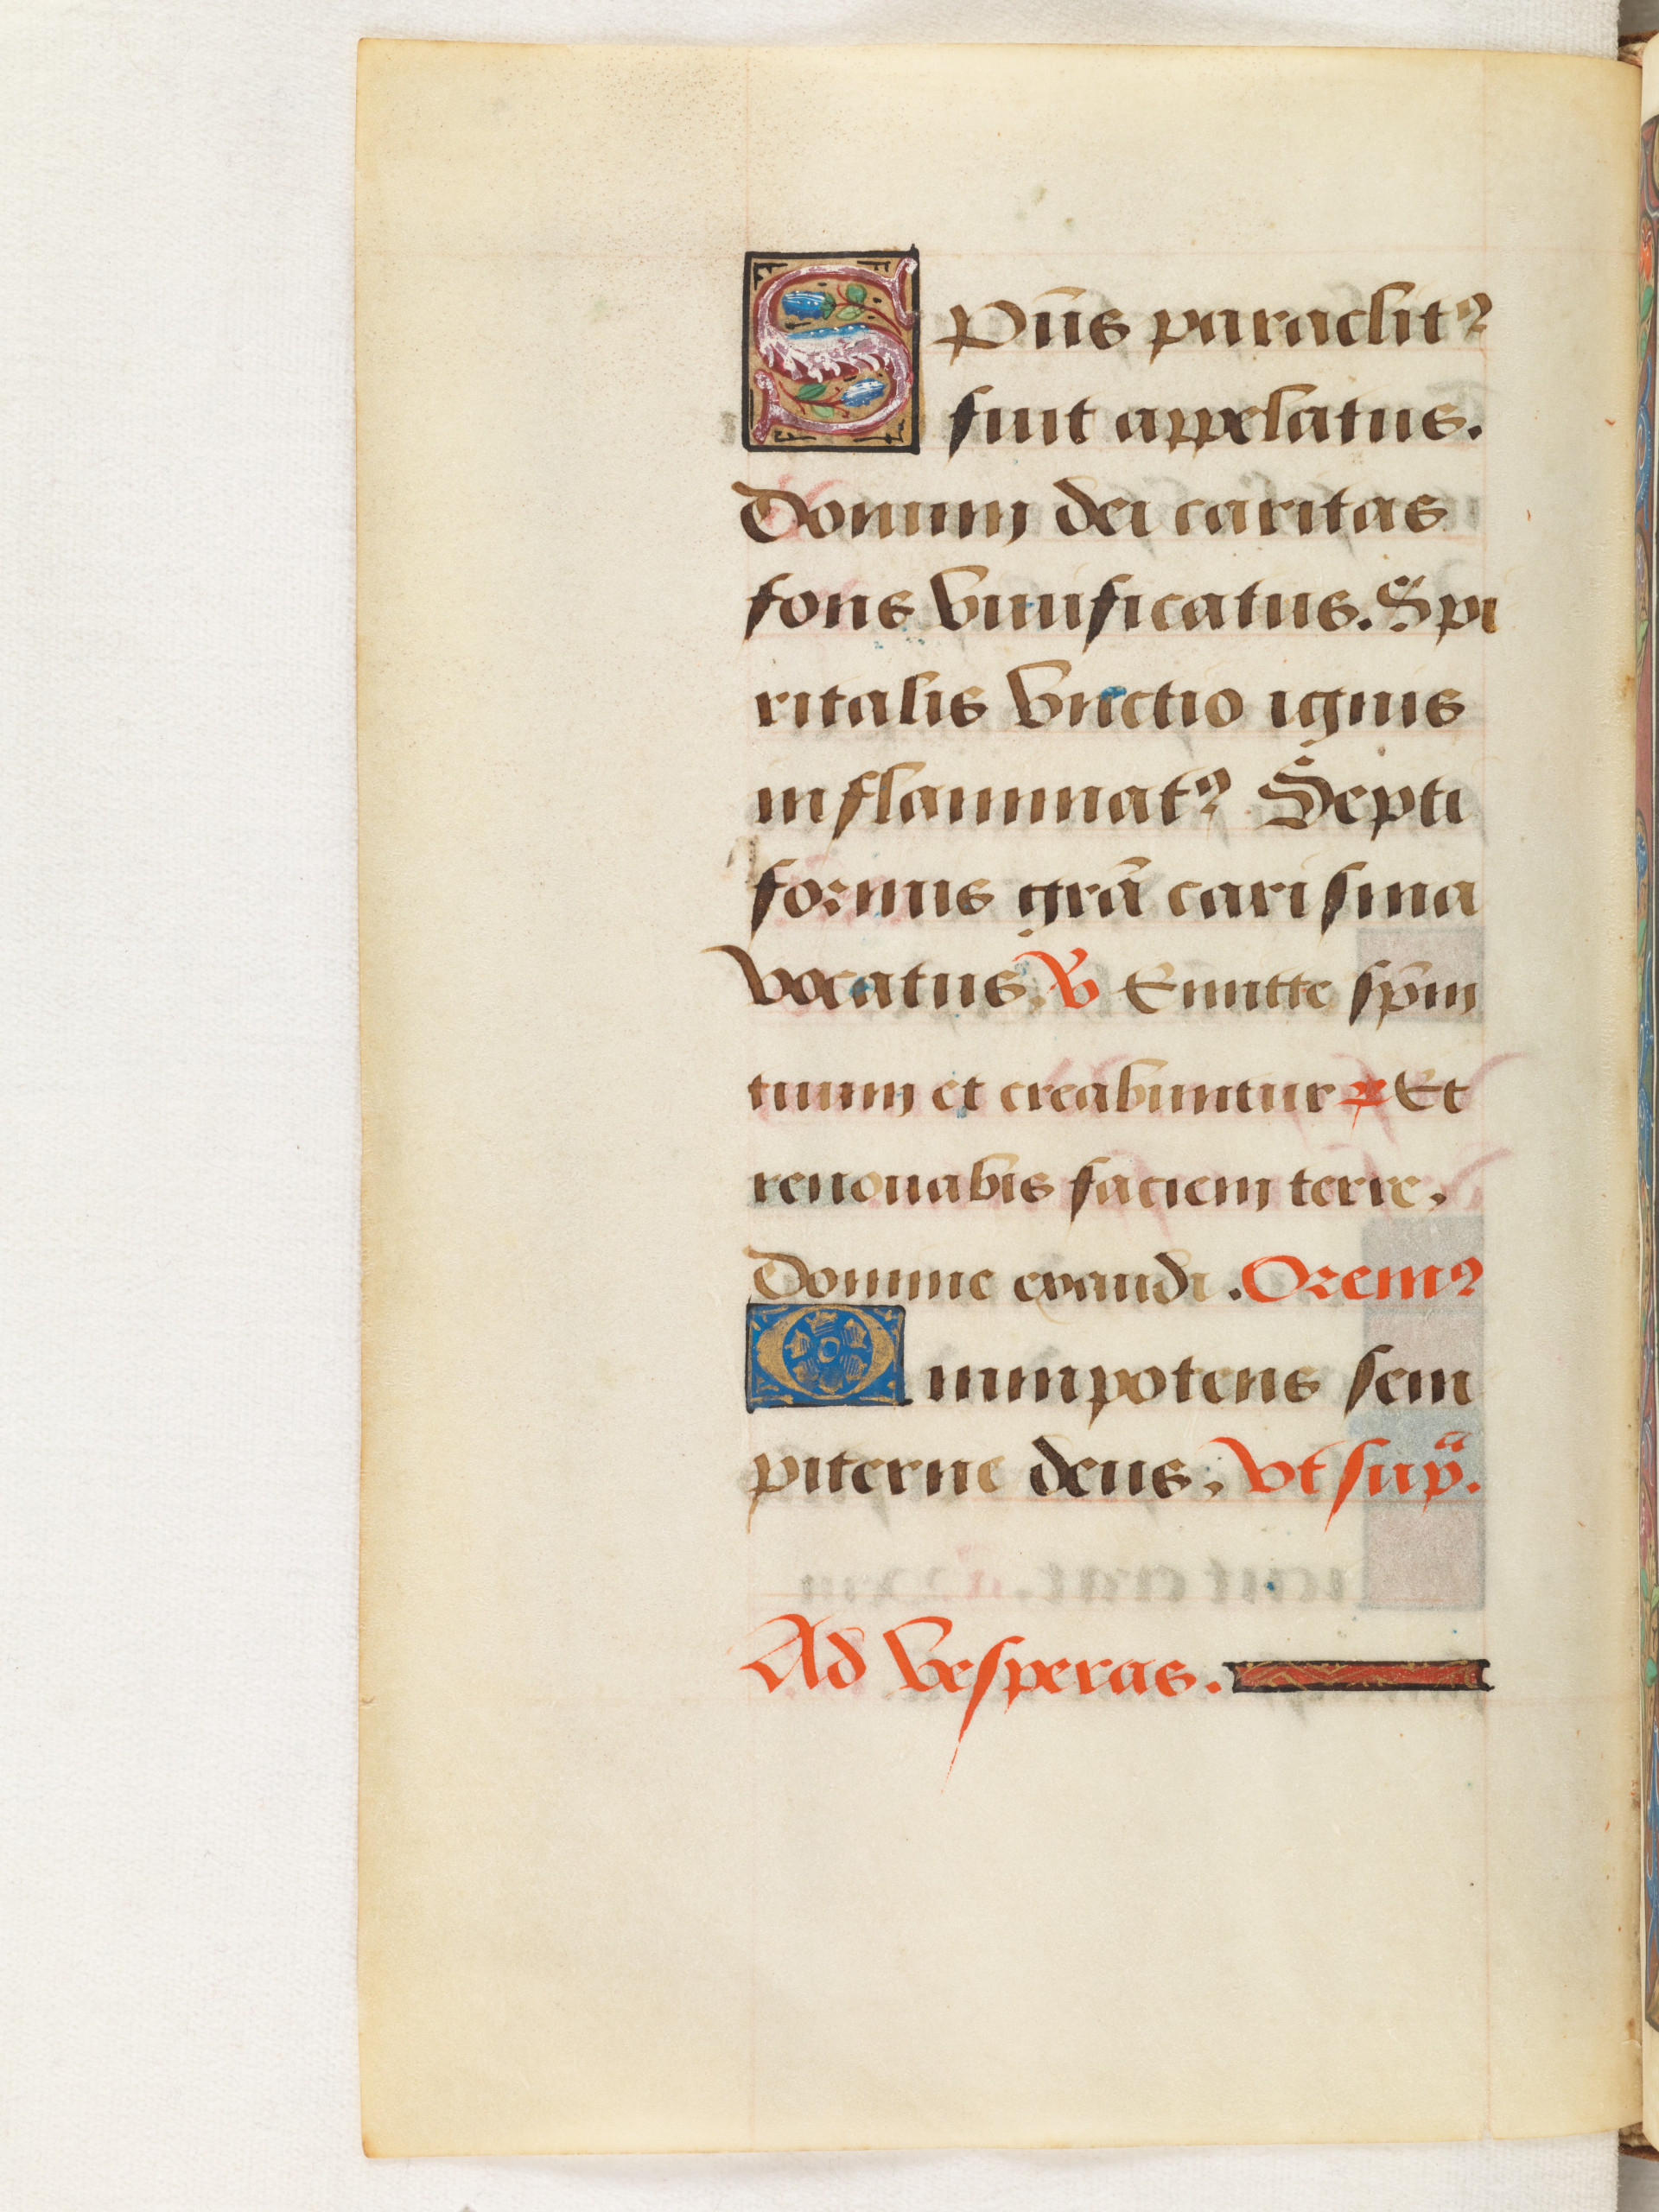 Spūs paraclitꝰ
fuit appelatus.
Donum dei caritas
fons viuificatus. Spi
ritalis vnctio ignis
inflammatꝰ Septi
formis grā carisma
vocatus. ℣ Emitte spm̄
tuum et creabuntur ℟ Et
renouabis faciem terre.
Domine exaudi. Oremꝰ
Omnipotens sem
piterne deus. vt supᵃ.
Ad vesperas.